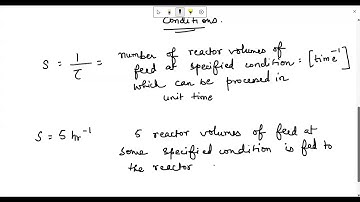 Conditions.
S = 1/τ = number of reactor volumes of
feed at specified condition = [time⁻¹]
which can be processed in
unit time
S = 5 hr⁻¹ 5 reactor volumes of feed at
some specified condition is fed to
the reactor